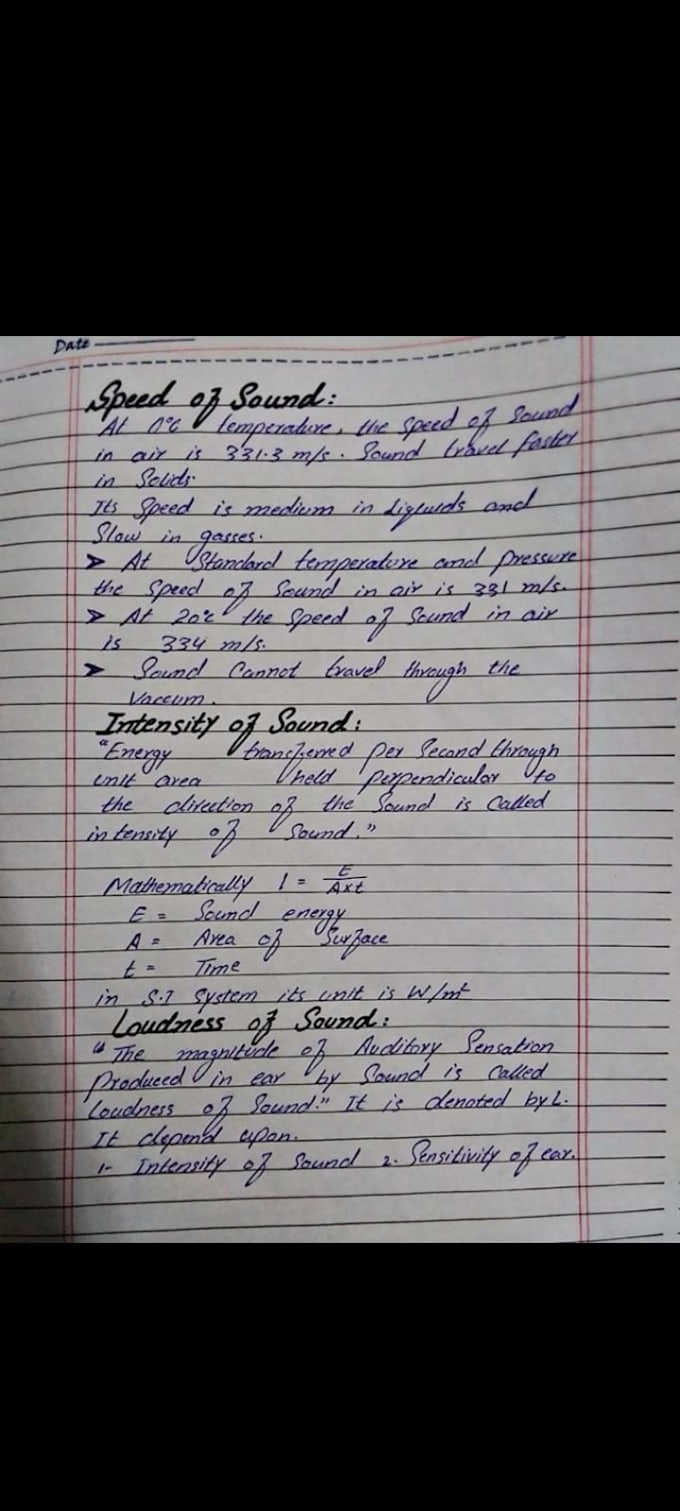 Date
Speed of Sound:
At 0°C temperature, the Speed of Sound
in air is 331.3 m/s. Sound travel faster
in Solids.
Its Speed is medium in Liquids and
Slow in gasses.
➤ At Standard temperature and pressure
the Speed of Sound in air is 331 m/s.
➤ At 20°C the Speed of Sound in air
is 334 m/s.
➤ Sound Cannot travel through the
Vaceum.
Intensity of Sound:
"Energy transferred per Second through
unit area held perpendicular to
the direction of the Sound is Called
intensity of Sound."
Mathematically I = E/Axt
E = Sound energy
A = Area of Surface
t = Time
in S.I System its unit is W/m²
Loudness of Sound:
"The magnitude of Auditory Sensation
Produced in ear by Sound is Called
Loudness of Sound." It is denoted by L.
It depend upon.
1- Intensity of Sound 2. Sensitivity of ear.